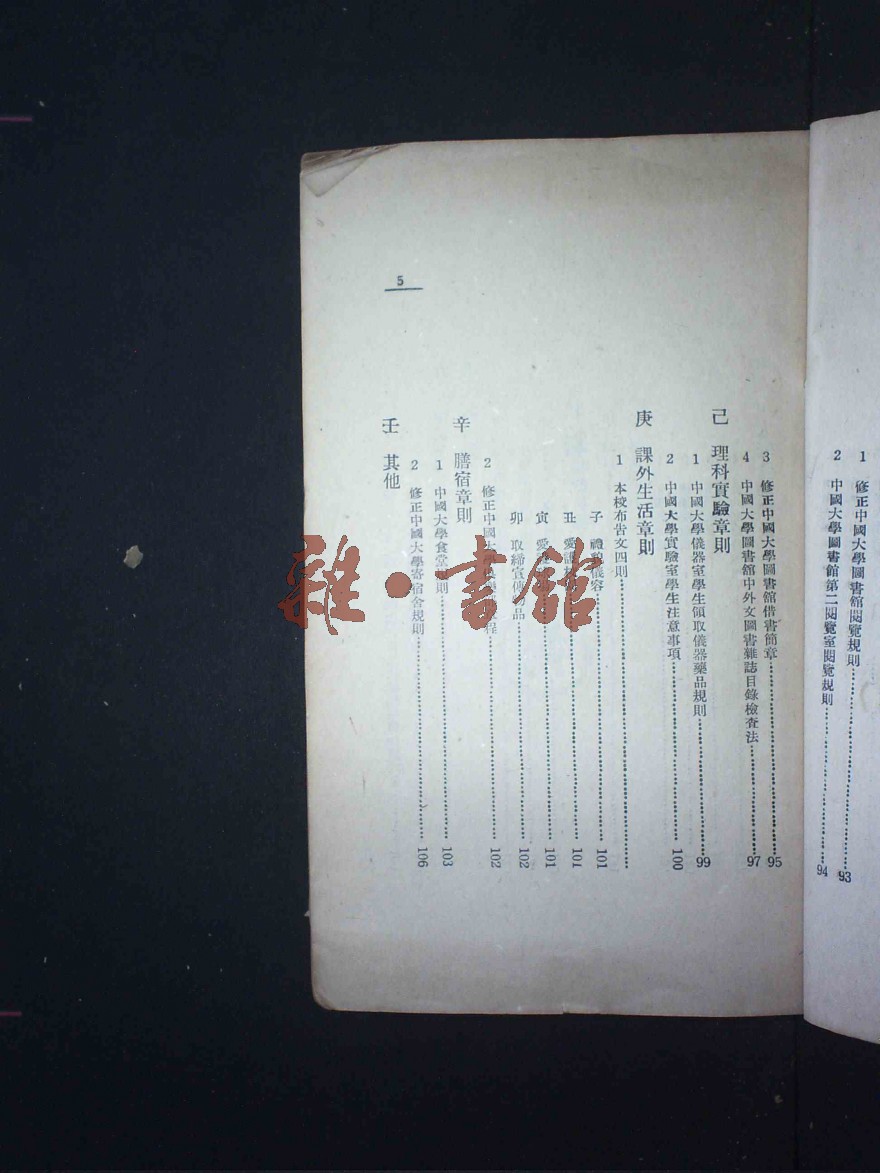 1 修正中國大學圖書館閱覽規則……93
2 中國大學圖書館第二閱覽室閱覽規則……94
3 修正中國大學圖書館借書簡章……95
4 中國大學圖書館中外文圖書雜誌目錄檢查法……97
己 理科實驗章則
1 中國大學儀器室學生領取儀器藥品規則……99
2 中國大學實驗室學生注意事項……100
庚 課外生活章則
1 本校布告文四則……
子 禮貌儀容……101
丑 愛……101
寅 愛……101
卯 取締宣傳物品……102
2 修正中國大學……程……102
辛 膳宿章則
1 中國大學食堂規則……103
2 修正中國大學寄宿舍規則……106
壬 其他
5
雜·書館